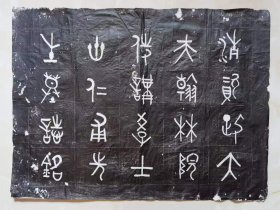 清資政大
夫翰林院
侍講學士
仁甫先
生墓誌銘